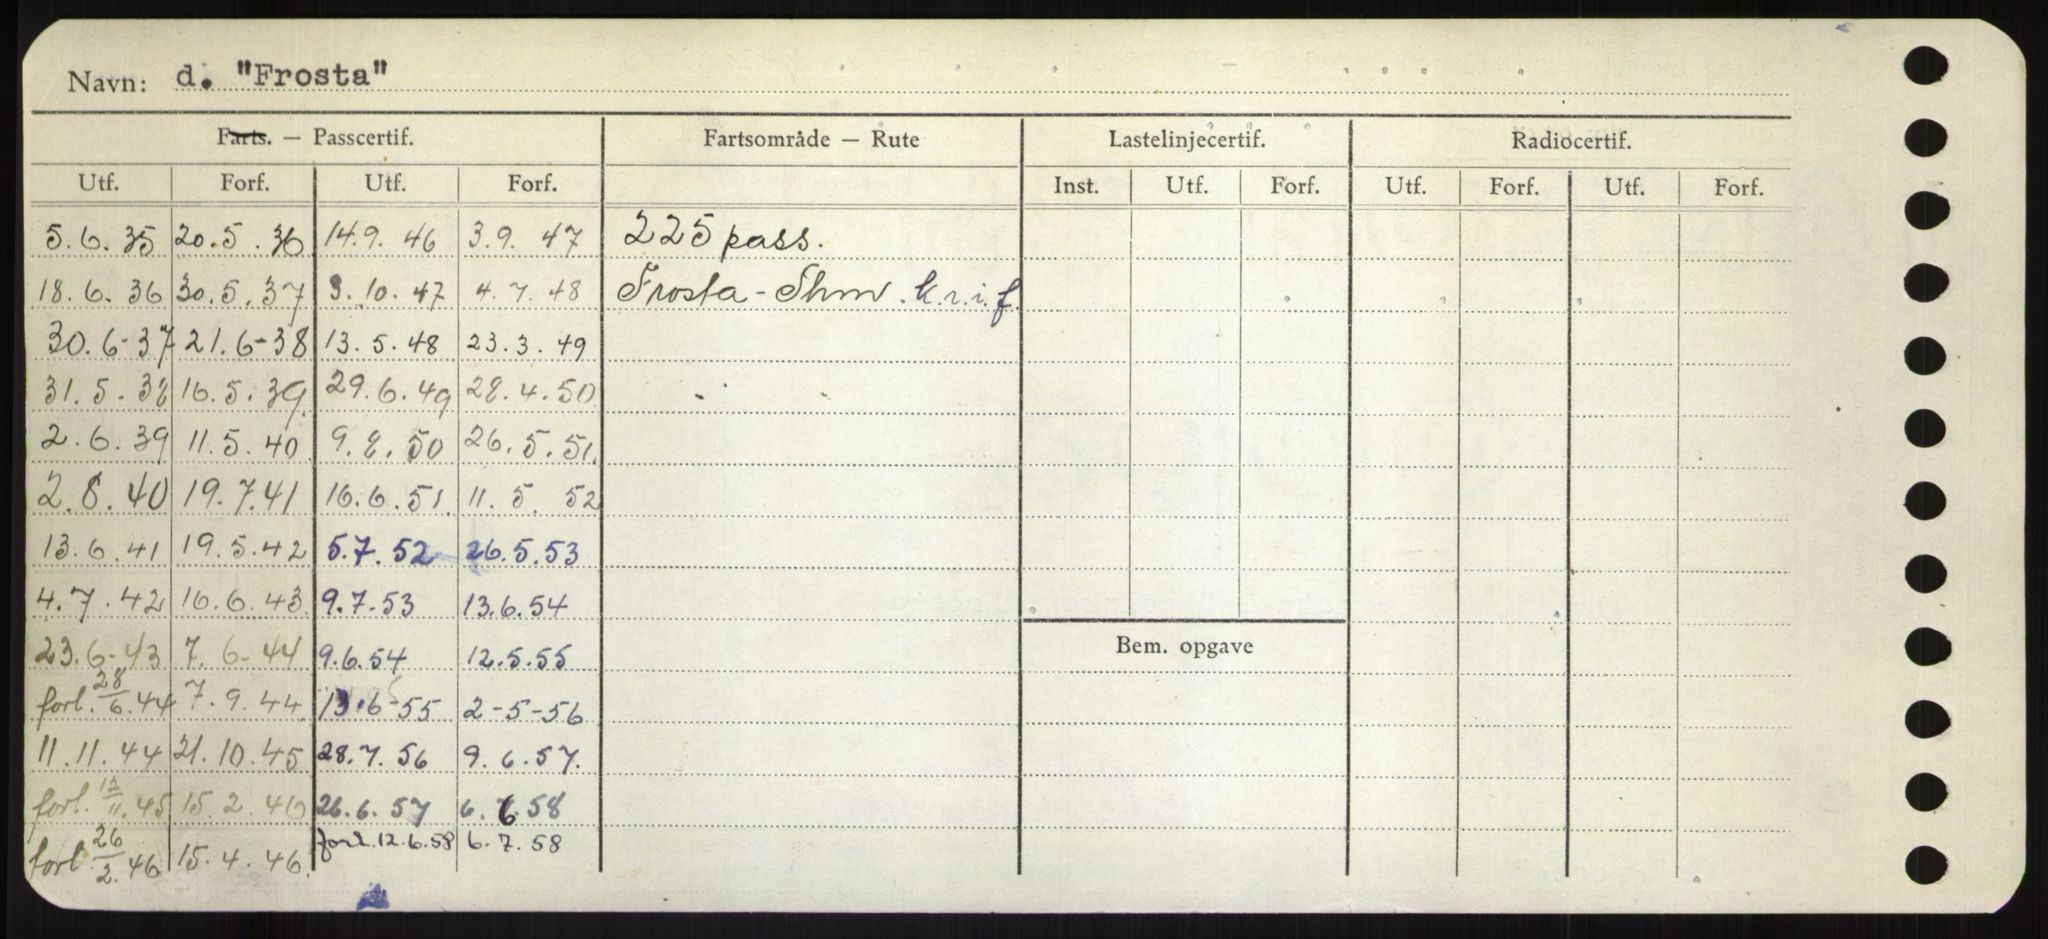 Navn: d. "Frosta"
Farts. — Passcertif. Fartsområde — Rute Lastelinjecertif. Radiocertif.
Utf. Forf. Utf. Forf. Inst. Utf. Forf. Utf. Forf. Utf. Forf.
5.6.35 20.5.36 14.9.46 3.9.47 225 pass.
18.6.36 30.5.37 3.10.47 4.7.48 Frosta - Thm. k.r.i.f.
30.6-37 21.6-38 13.5.48 23.3.49
31.5.38 16.5.39 29.6.49 28.4.50
2.6.39 11.5.40 9.8.50 26.5.51.
2.8.40 19.7.41 16.6.51. 11.5.52
13.6.41 19.5.42 5.7.52 26.5.53
4.7.42 16.6.43. 9.7.53 13.6.54
23.6-43 7.6-44 9.6.54 12.5.55
Bem. opgave
forl. 28/6.44 7.9.44 13.6-55 2-5-56
11.11.44 31.10.45 28.7.56 9.6.57.
forl. 12/11.45 15.2.46 26.6.57 6.6.58
forl. 26/2.46 15.4.46. forl. 12.6.58 6.7.58